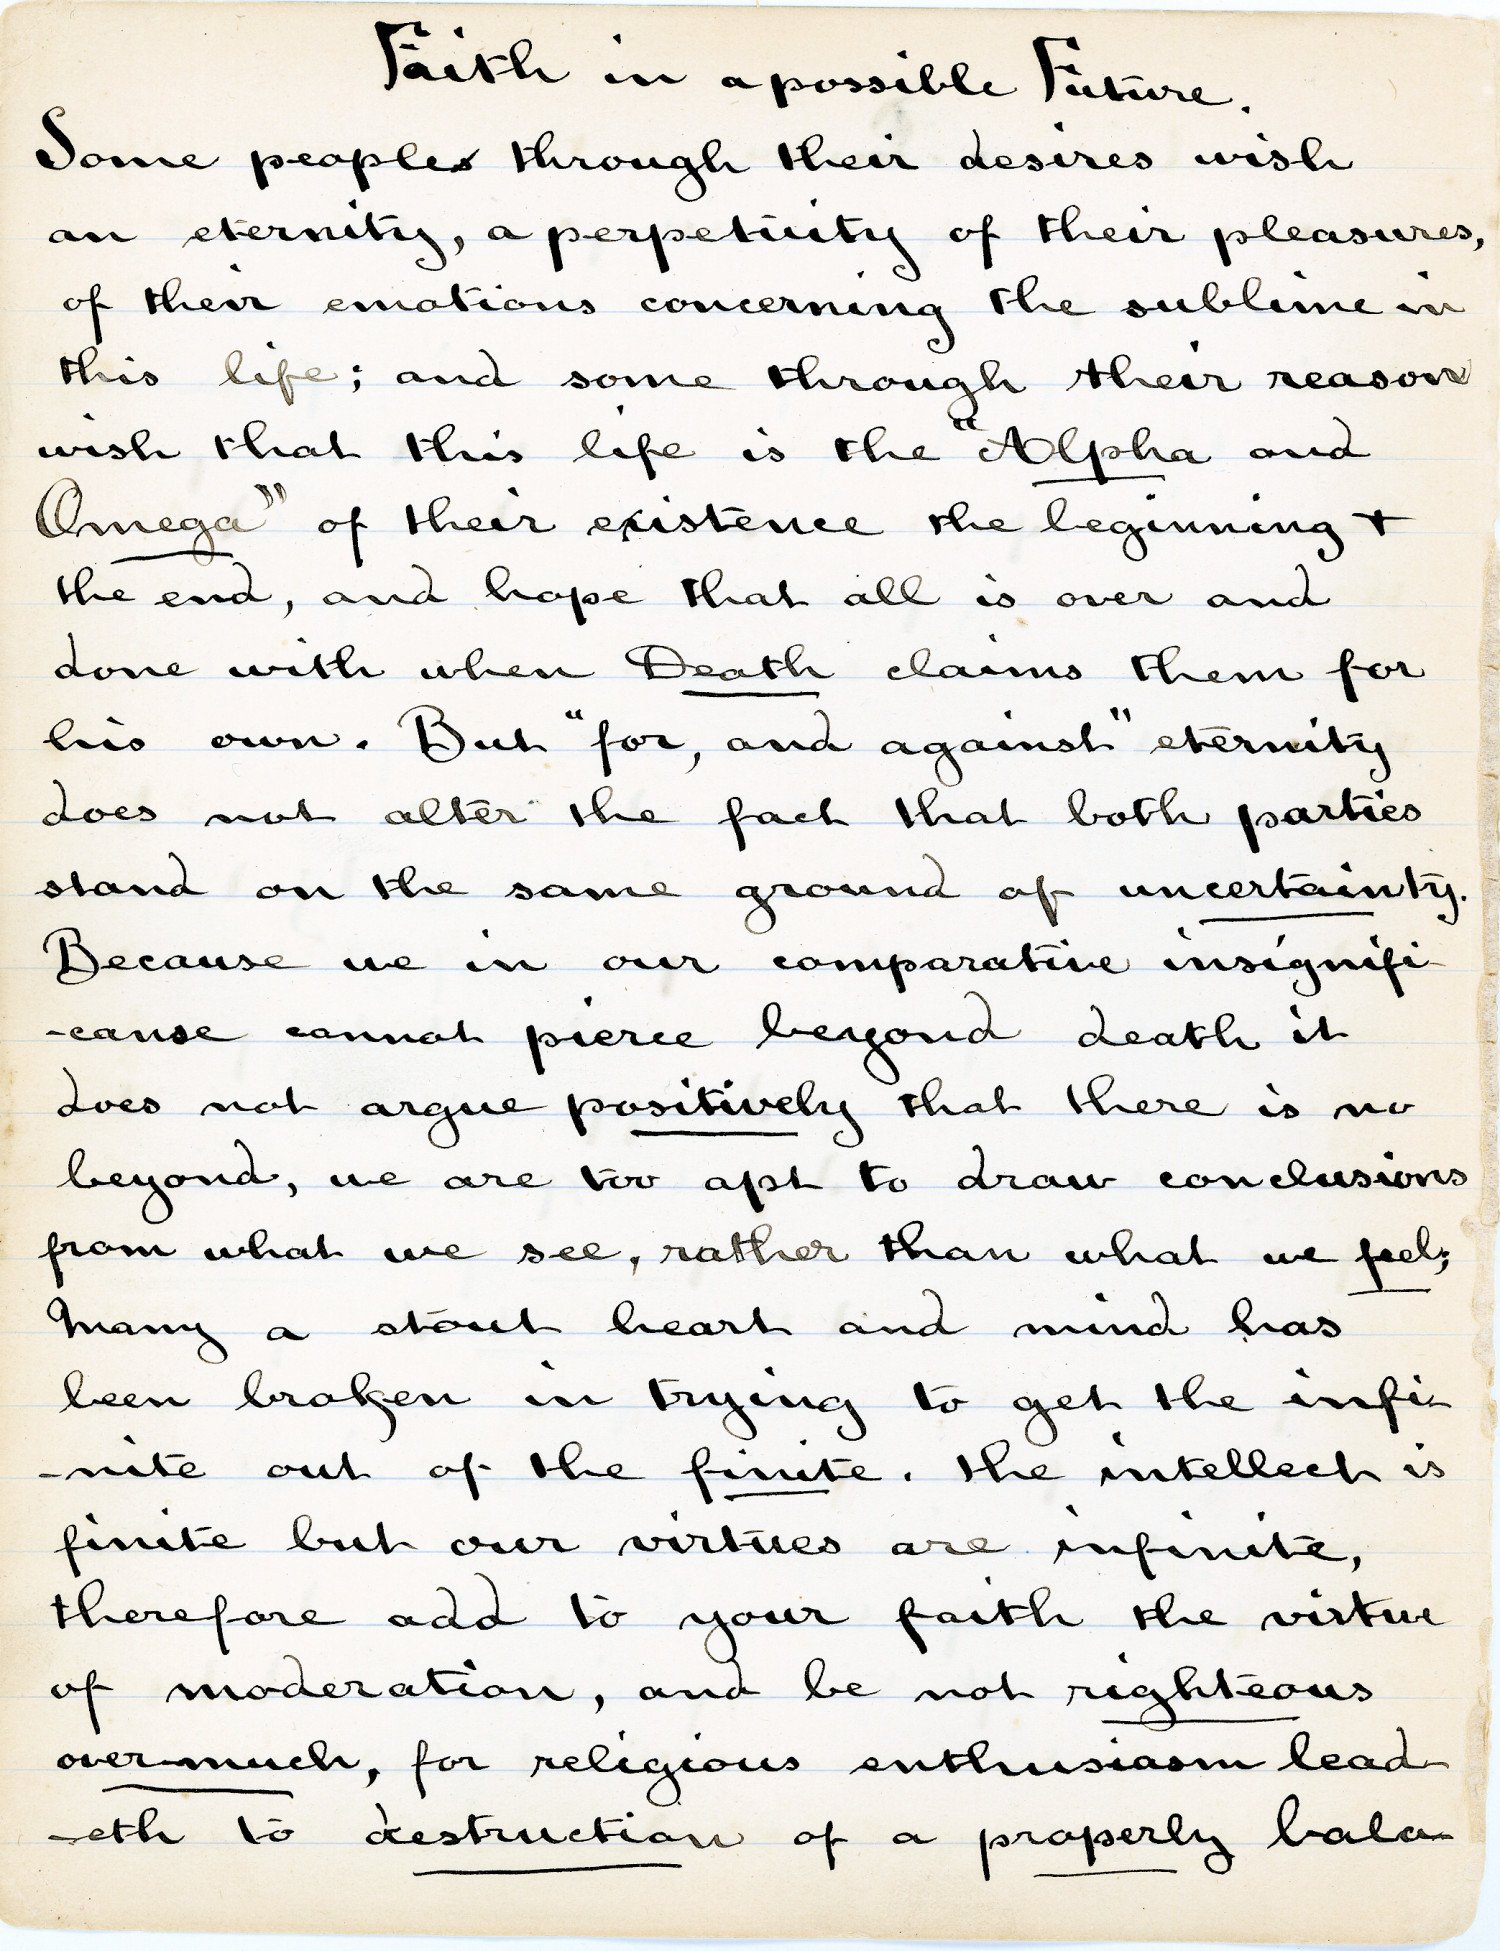 Faith in a possible Future.
Some peoples through their desires wish
an eternity, a perpetuity of their pleasures,
of their emotions concerning the sublime in
this life; and some through their reason
wish that this life is the "Alpha and
Omega" of their existence the beginning +
the end, and hope that all is over and
done with when Death claims them for
his own. But "for, and against" eternity
does not alter the fact that both parties
stand on the same ground of uncertainty.
Because we in our comparative insignifi-
-canse cannot pierce beyond death it
does not argue positively that there is no
beyond, we are too apt to draw conclusions
from what we see, rather than what we feel;
Many a stout heart and mind has
been broken in trying to get the infi-
-nite out of the finite. the intellect is
finite but our virtues are infinite,
therefore add to your faith the virtue
of moderation, and be not righteous
over-much, for religious enthusiasm lead-
-eth to destruction of a properly bala-